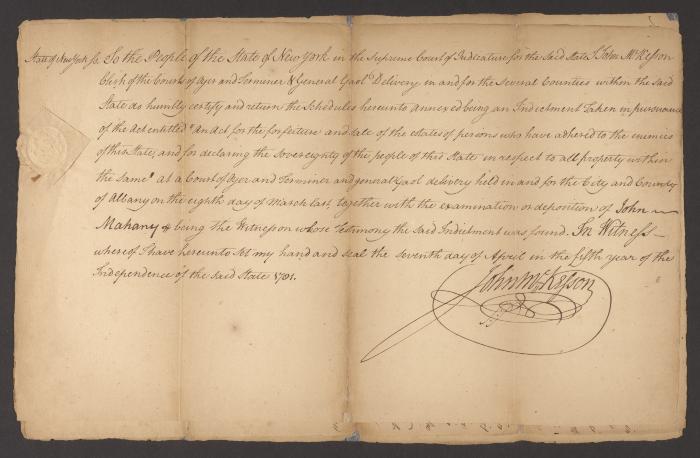 State of New York ss. To the People of the State of New York in the Supreme Court of Judicature for the said State I John McKesson
Clerk of the Courts of Oyer and Terminer & General Gaol Delivery in and for the Several Counties within the said
State as humbly certify and return the Schedules hereunto annexed being an Indictment Taken in pursuance
of the Act entitled "An Act for the forfeiture and sale of the estates of persons who have adhered to the enemies
of this State, and for declaring the Sovereignty of the people of this State in respect to all property within
the same" at a Court of Oyer and Terminer and general Gaol delivery held in and for the City and County
of Albany on the eighth day of March last, together with the examination or deposition of John
Mahany being the Witness on whose Testimony the said Indictment was found. In Witness
whereof I have hereunto set my hand and seal the seventh day of April in the fifth year of the
Independence of the said State 1781.
John McKesson